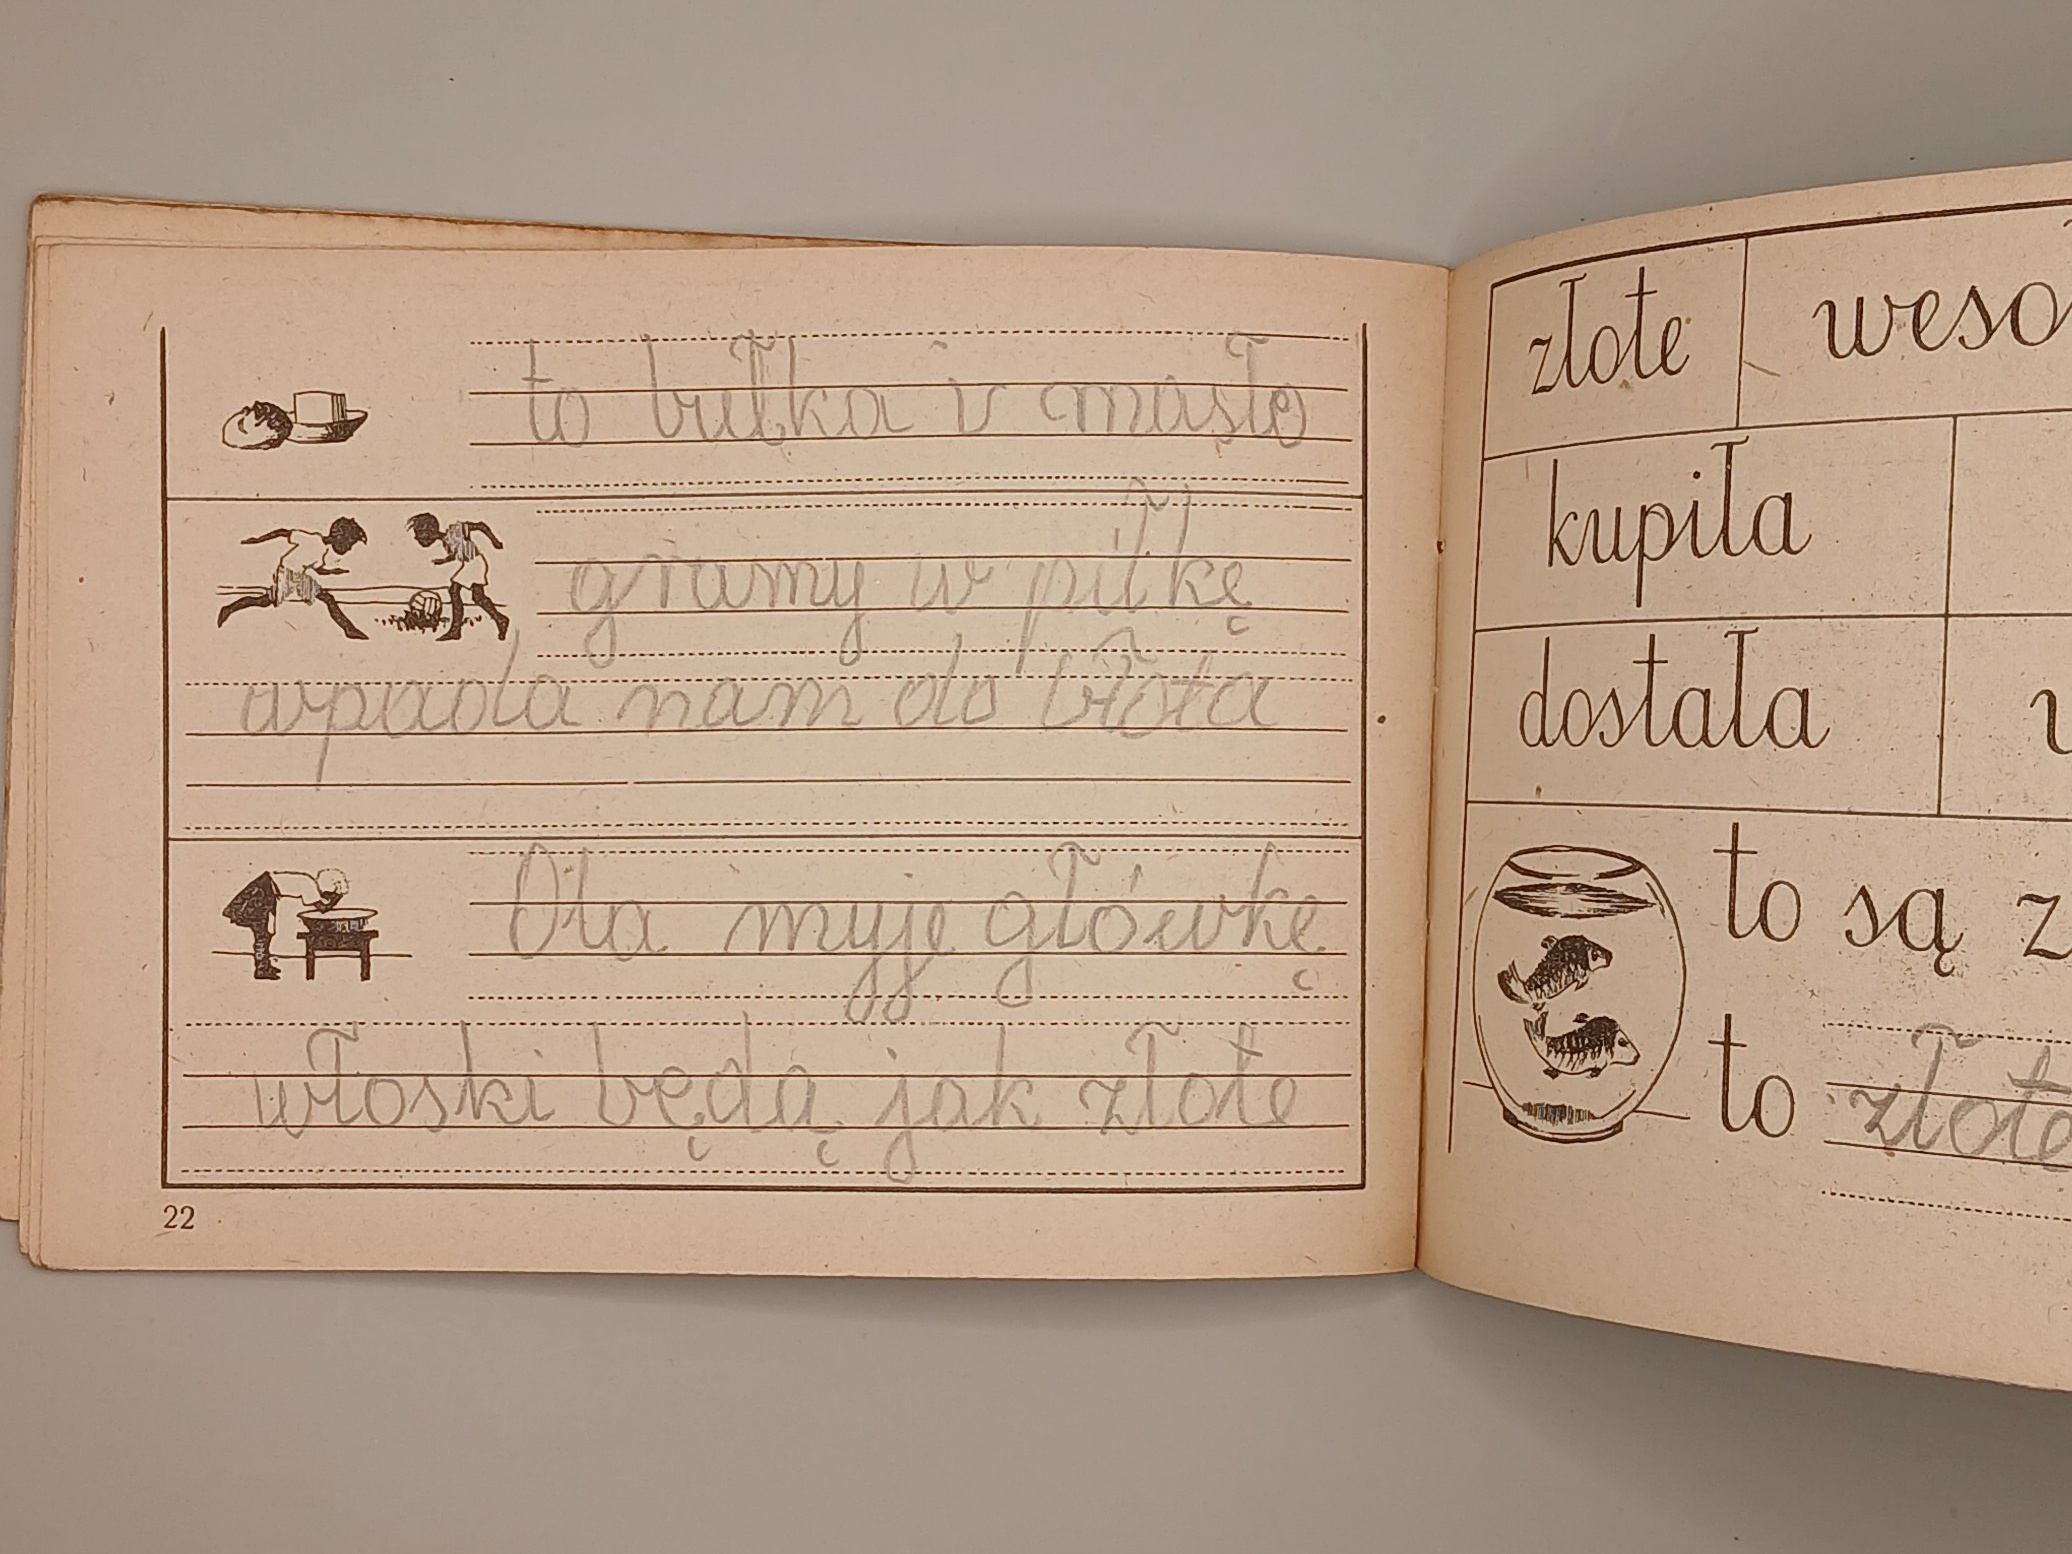 to bułka i masło
gramy w piłkę
wpada nam do błota
Ola myje główkę
włoski będą jak złote
22
złote
weso
kupiła
dostała
to są z
to złote